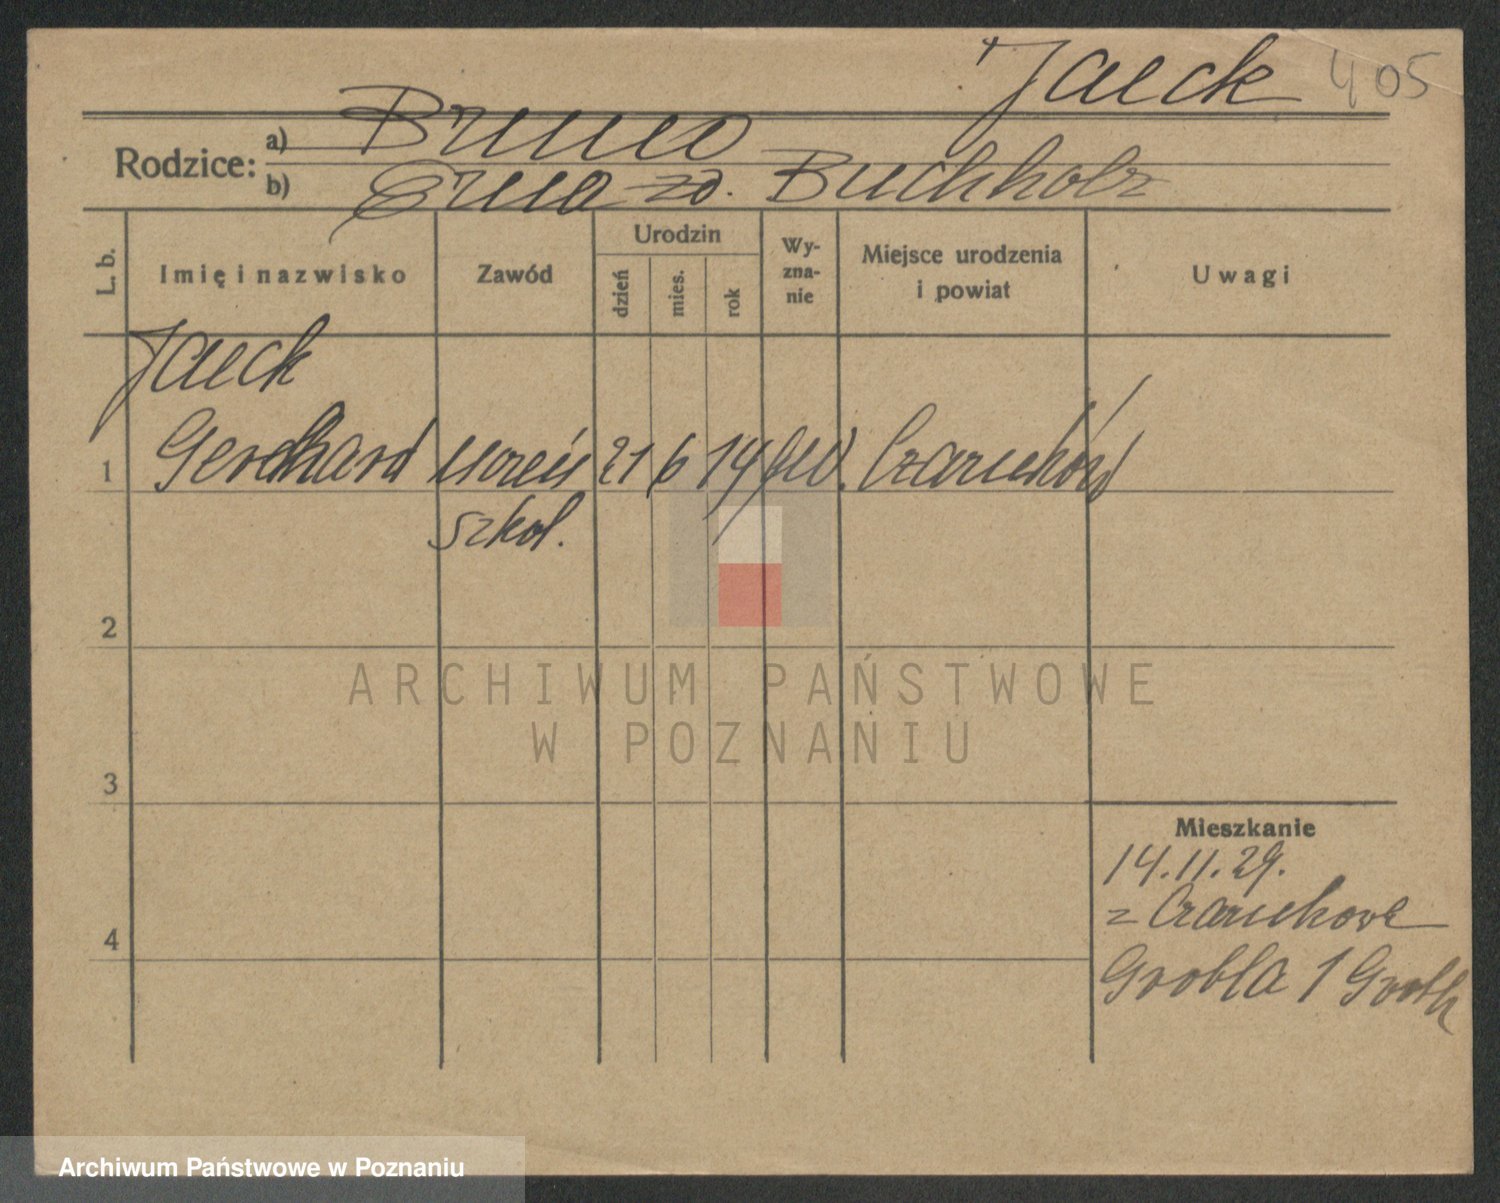 Jaeck 405
Rodzice: a) Bruno
b) Erna zd. Buchholz
L. b.
Imię i nazwisko
Zawód
Urodzin
dzień
mies.
rok
Wy-
zna-
nie
Miejsce urodzenia
i powiat
Uwagi
Jaeck
1 Gerdhard uczeń 21 6 14 ew. Czarnków
szkol.
2
3
4
Mieszkanie
14.11.29.
z Czarnkowa
Grobla 1
ARCHIWUM PAŃSTWOWE
W POZNANIU
Archiwum Państwowe w Poznaniu